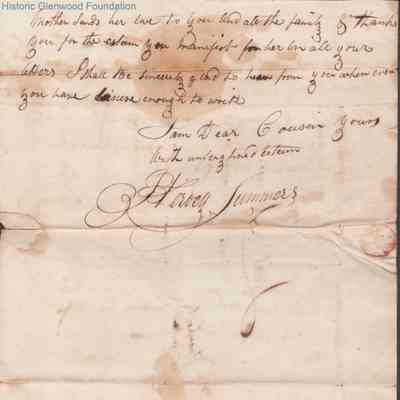 Historic Glenwood Foundation
Mother Sends her love to you and all the family & thanks
you for the esteem you manifest for her in all your
letters I shall be sincerely glad to hear from you when ever
you have leisure enough to write
I am Dear Cousin Yours
With unfeigned esteem
Summers